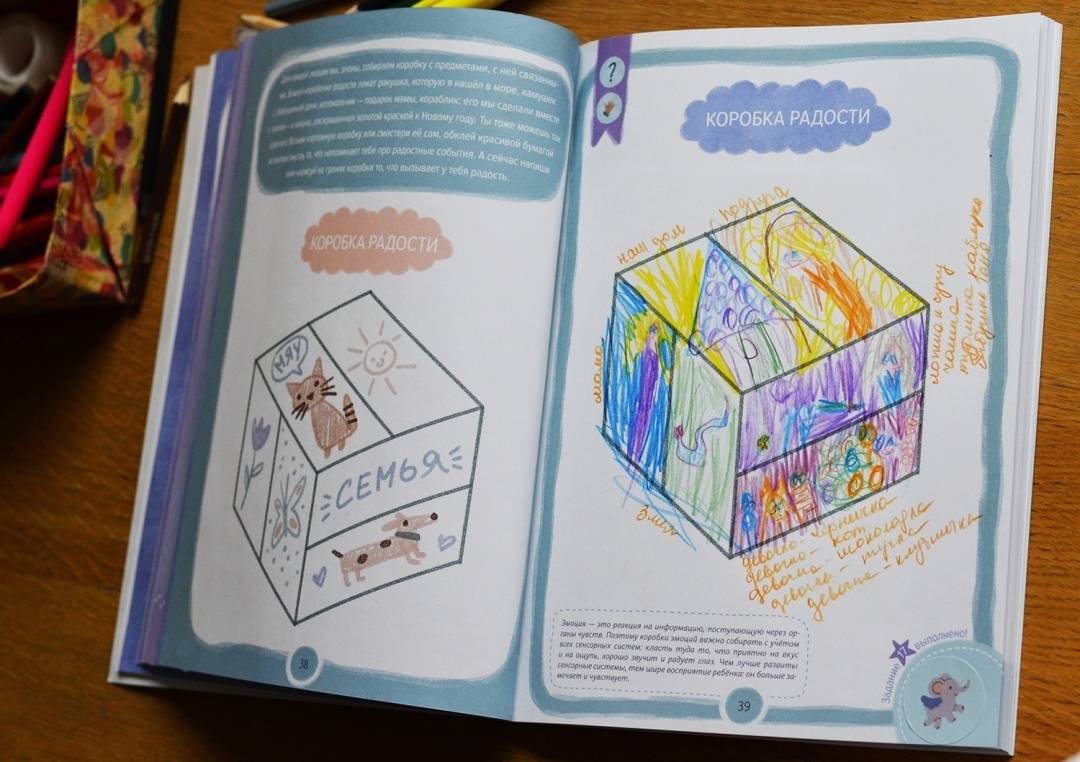 Для каждой эмоции мы, эльфы, собираем коробку с предметами, с ней связанны-
ми. В моей коробочке радости лежат ракушка, которую я нашёл в море, камушек
дома, колокольчик — подарок мамы, кораблик; его мы сделали вместе
с папой — и шишка, раскрашенная золотой краской к Новому году. Ты тоже можешь так
сделать. Возьми картонную коробку или смастери её сам, обклей красивой бумагой
и положи внутрь то, что напоминает тебе про радостные события. А сейчас напиши
или нарисуй на гранях коробки то, что вызывает у тебя радость.
КОРОБКА РАДОСТИ
МЯУ
СЕМЬЯ
38
?
КОРОБКА РАДОСТИ
подруга
наш дом
мама
змея
девочка - черничка
девочка - кот
девочка - шоколадка
девочка - туча
девочка - клубничка
Эмоция — это реакция на информацию, поступающую через ор-
ганы чувств. Поэтому коробки эмоций важно собирать с учётом
всех сенсорных систем: класть туда то, что приятно на вкус
и на ощупь, хорошо звучит и радует глаз. Чем лучше развиты
сенсорные системы, тем шире восприятие ребёнка: он больше за-
мечает и чувствует.
Задание выполнено!
39